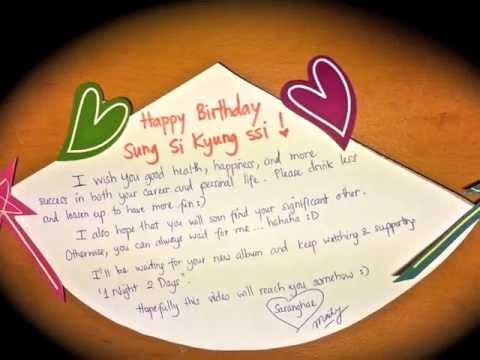 Happy Birthday
Sung Si Kyung ssi !
I wish you good health, happiness, and more
success in both your career and personal life. Please drink less
and loosen up to have more fun :)
I also hope that you will soon find your significant other.
Otherwise, you can always wait for me ... hahaha :D
I'll be waiting for your new album and keep watching & supporting
"1 Night 2 Days".
Hopefully this video will reach you somehow :)
Saranghae